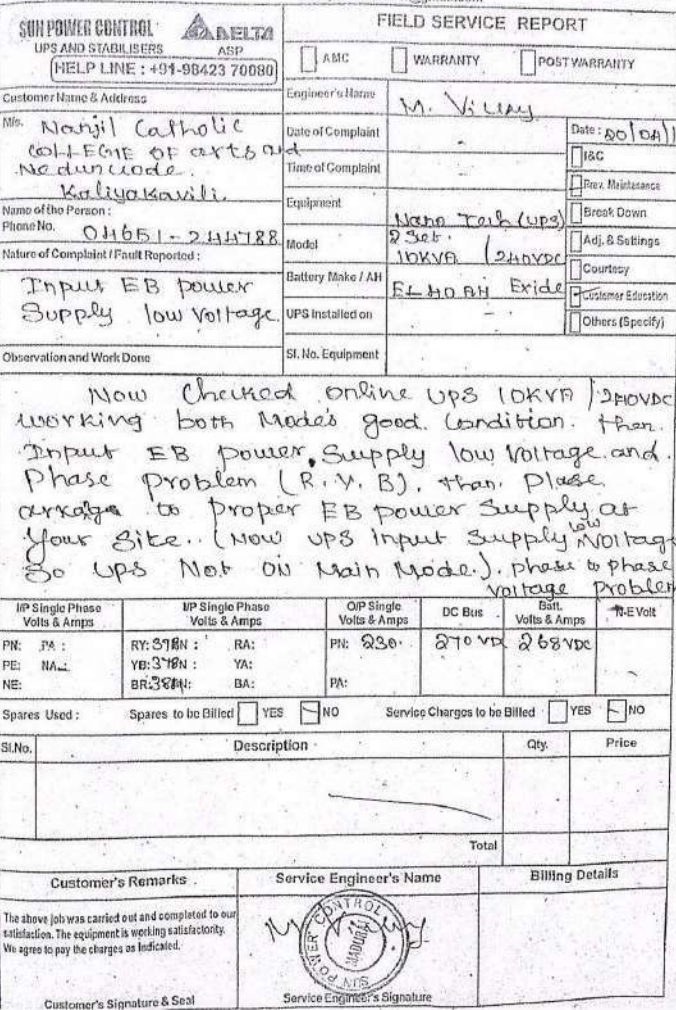 SUN POWER CONTROL
UPS AND STABILISERS
DELTA
ASP
HELP LINE : +91-98423 70080
FIELD SERVICE REPORT
AMC WARRANTY POST WARRANTY
Customer Name & Address
M/s. Nanjil Catholic
COLLEGE OF arts and
Nedumcode.
Kaliyakavili.
Name of the Person :
Phone No. 04651-244788
Nature of Complaint / Fault Reported :
Input EB power
Supply low voltage.
Engineer's Name M. Vijay
Date of Complaint -
Time of Complaint -
Equipment Nano Tech (UPS)
2 Set.
Model 10KVA / 240VDC
Battery Make / AH EL 40 AH Exide
UPS Installed on
Sl. No. Equipment
Date :
I&C
Prev. Maintanance
Break Down
Adj. & Settings
Courtesy
Customer Education
Others (Specify)
Observation and Work Done
Now Checked online UPS 10KVA / 240VDC
working both Mode's good. Condition. then.
Input EB power, Supply low Voltage. and.
Phase problem (R.Y.B). than. Please.
to proper EB power Supply at
Your Site.. (Now UPS input Supply low Voltage
So UPS Not ON Main Mode.). phase to phase
voltage problem
I/P Single Phase Volts & Amps
I/P Single Phase Volts & Amps
O/P Single Volts & Amps
DC Bus
Batt. Volts & Amps
N-E Volt
PN: PA : RY: 378N : RA: PN: 230. 270 VD 268 VDC
PE: NA: YB: 378N : YA:
NE: BR: BA: PA:
Spares Used : Spares to be Billed YES NO Service Charges to be Billed YES NO
Sl.No. Description Qty. Price
Total
Customer's Remarks Service Engineer's Name Billing Details
The above job was carried out and completed to our
satisfaction. The equipment is working satisfactority.
We agree to pay the charges as Indicated.
SUN POWER CONTROL
MADURAI
Customer's Signature & Seal Service Engineer's Signature